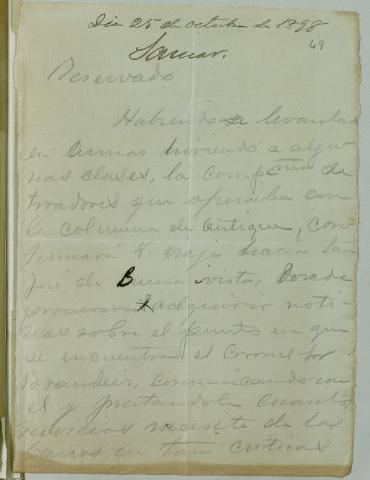 Dia 25 de octubre de 1898
49
Samar.
Reservado
Habiendose levantado
en armas hiriendo a algu-
nas clases, la compª de
tiradores que operaba con
la columna de Antique, con-
tinuará V. viaje hacia San
José de Buenavista, donde
procurará adquirir noti-
cias sobre el punto en que
se encuentra el Coronel Sr
Brandeis, comunicando con
el y prestandole cuantos
servicios necesite de los
barcos en tan criticas